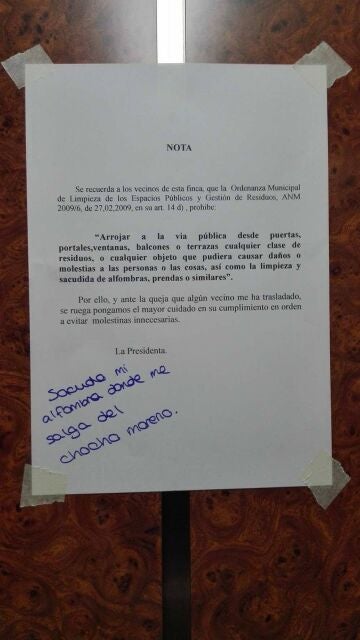 NOTA
Se recuerda a los vecinos de esta finca, que la Ordenanza Municipal
de Limpieza de los Espacios Públicos y Gestión de Residuos, ANM
2009/6, de 27,02,2009, en su art. 14 d) , prohíbe:
"Arrojar a la vía pública desde puertas,
portales,ventanas, balcones o terrazas cualquier clase de
residuos, o cualquier objeto que pudiera causar daños o
molestias a las personas o las cosas, así como la limpieza y
sacudida de alfombras, prendas o similares".
Por ello, y ante la queja que algún vecino me ha trasladado,
se ruega pongamos el mayor cuidado en su cumplimiento en orden
a evitar molestinas innecesarias.
La Presidenta.
Sacudo mi
alfombra donde me
salga del
chocho moreno.